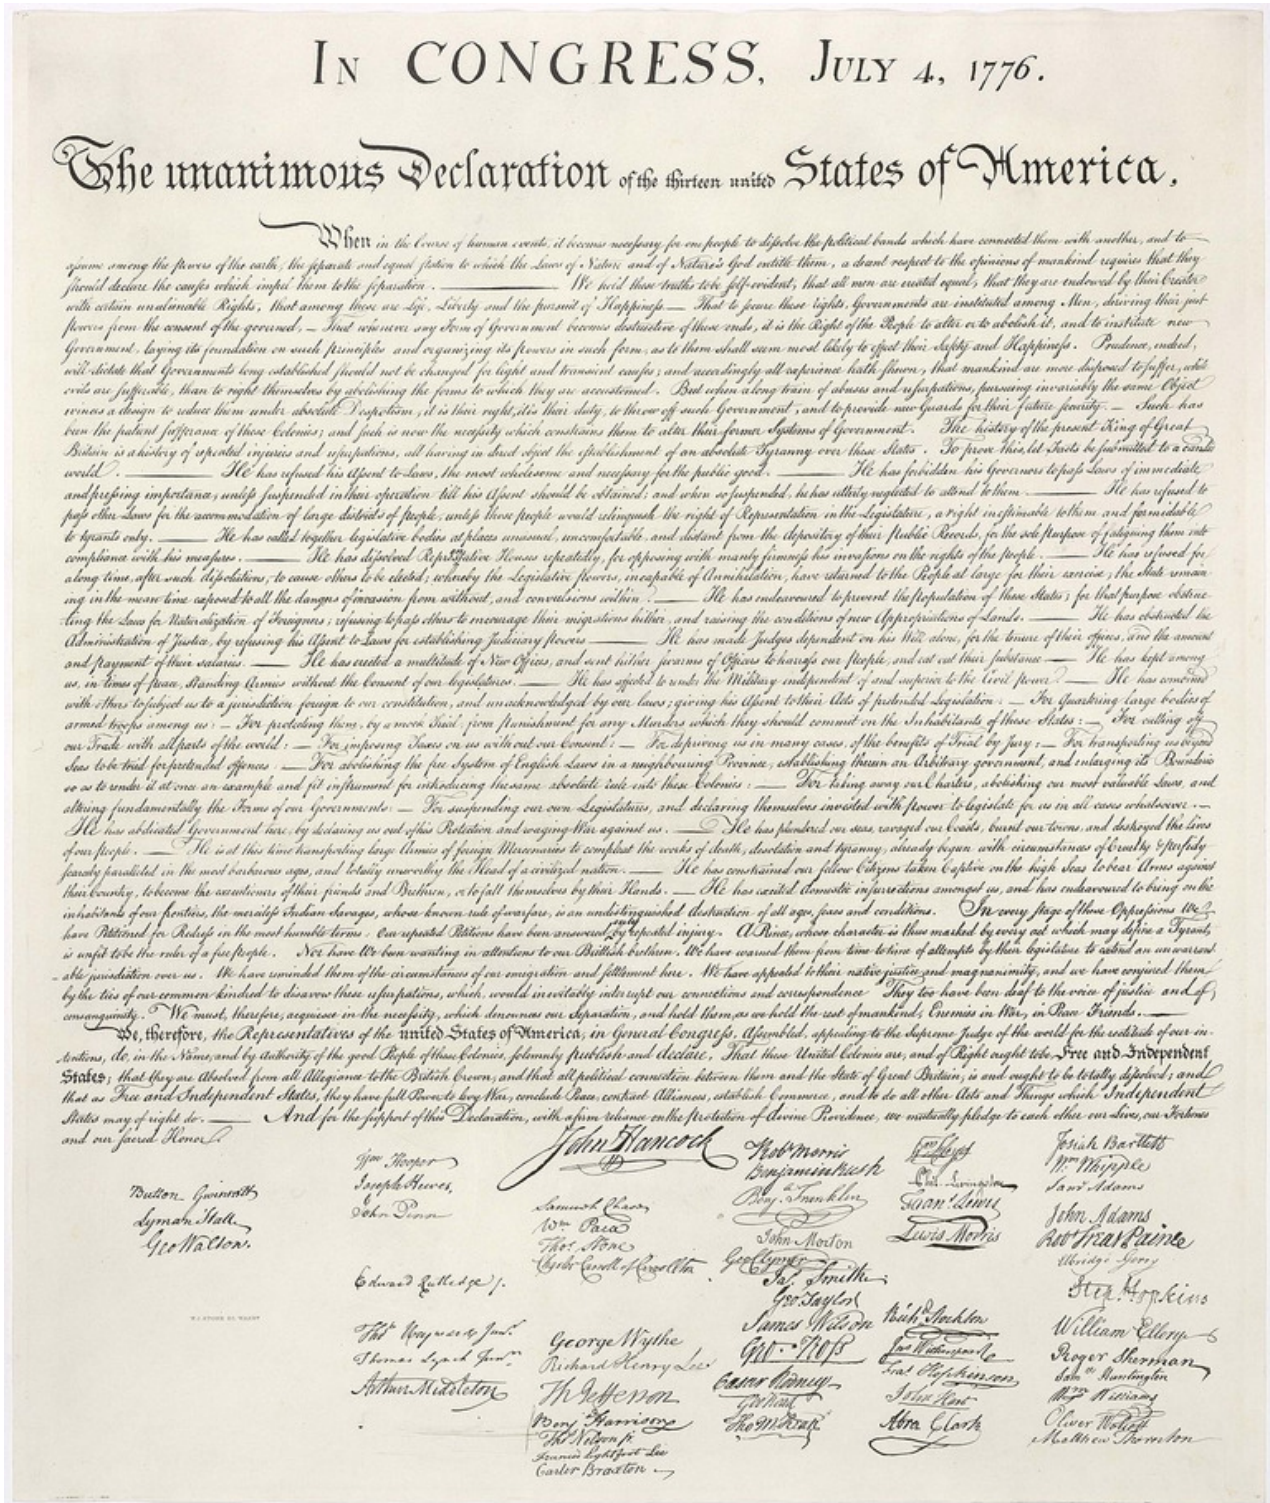 IN CONGRESS, JULY 4, 1776.
The unanimous Declaration of the thirteen united States of America,
When in the Course of human events, it becomes necessary for one people to dissolve the political bands which have connected them with another, and to
assume among the powers of the earth, the separate and equal station to which the Laws of Nature and of Nature's God entitle them, a decent respect to the opinions of mankind requires that they
should declare the causes which impel them to the separation. — We hold these truths to be self-evident, that all men are created equal, that they are endowed by their Creator
with certain unalienable Rights, that among these are Life, Liberty and the pursuit of Happiness.— That to secure these rights, Governments are instituted among Men, deriving their just
powers from the consent of the governed, — That whenever any Form of Government becomes destructive of these ends, it is the Right of the People to alter or to abolish it, and to institute new
Government, laying its foundation on such principles and organizing its powers in such form, as to them shall seem most likely to effect their Safety and Happiness. Prudence, indeed,
will dictate that Governments long established should not be changed for light and transient causes; and accordingly all experience hath shewn, that mankind are more disposed to suffer, while
evils are sufferable, than to right themselves by abolishing the forms to which they are accustomed. But when a long train of abuses and usurpations, pursuing invariably the same Object
evinces a design to reduce them under absolute Despotism, it is their right, it is their duty, to throw off such Government, and to provide new Guards for their future security. — Such has
been the patient sufferance of these Colonies; and such is now the necessity which constrains them to alter their former Systems of Government. The history of the present King of Great
Britain is a history of repeated injuries and usurpations, all having in direct object the establishment of an absolute Tyranny over these States. To prove this, let Facts be submitted to a candid
world. — He has refused his Assent to Laws, the most wholesome and necessary for the public good. — He has forbidden his Governors to pass Laws of immediate
and pressing importance, unless suspended in their operation till his Assent should be obtained; and when so suspended, he has utterly neglected to attend to them. — He has refused to
pass other Laws for the accommodation of large districts of people, unless those people would relinquish the right of Representation in the Legislature, a right inestimable to them and formidable
to tyrants only. — He has called together legislative bodies at places unusual, uncomfortable, and distant from the depository of their Public Records, for the sole purpose of fatiguing them into
compliance with his measures. — He has dissolved Representative Houses repeatedly, for opposing with manly firmness his invasions on the rights of the people. — He has refused for
a long time, after such dissolutions, to cause others to be elected; whereby the Legislative powers, incapable of Annihilation, have returned to the People at large for their exercise; the State remain-
ing in the mean time exposed to all the dangers of invasion from without, and convulsions within. — He has endeavoured to prevent the population of these States; for that purpose obstruc-
ting the Laws for Naturalization of Foreigners; refusing to pass others to encourage their migrations hither, and raising the conditions of new Appropriations of Lands. — He has obstructed the
Administration of Justice, by refusing his Assent to Laws for establishing Judiciary powers — He has made Judges dependent on his Will alone, for the tenure of their offices, and the amount
and payment of their salaries. — He has erected a multitude of New Offices, and sent hither swarms of Officers to harrass our people, and eat out their substance — He has kept among
us, in times of peace, Standing Armies without the Consent of our legislatures. — He has affected to render the Military independent of and superior to the Civil power. — He has combined
with others to subject us to a jurisdiction foreign to our constitution, and unacknowledged by our laws; giving his Assent to their Acts of pretended Legislation: — For Quartering large bodies of
armed troops among us: — For protecting them, by a mock Trial, from punishment for any Murders which they should commit on the Inhabitants of these States: — For cutting off
our Trade with all parts of the world: — For imposing Taxes on us without our Consent: — For depriving us in many cases, of the benefits of Trial by Jury: — For transporting us beyond
Seas to be tried for pretended offences — For abolishing the free System of English Laws in a neighbouring Province, establishing therein an Arbitrary government, and enlarging its Boundaries
so as to render it at once an example and fit instrument for introducing the same absolute rule into these Colonies: — For taking away our Charters, abolishing our most valuable Laws, and
altering fundamentally the Forms of our Governments: — For suspending our own Legislatures, and declaring themselves invested with power to legislate for us in all cases whatsoever. —
He has abdicated Government here, by declaring us out of his Protection and waging War against us. — He has plundered our seas, ravaged our Coasts, burnt our towns, and destroyed the lives
of our people. — He is at this time transporting large Armies of foreign Mercenaries to compleat the works of death, desolation and tyranny, already begun with circumstances of Cruelty & perfidy
scarcely paralleled in the most barbarous ages, and totally unworthy the Head of a civilized nation. — He has constrained our fellow Citizens taken Captive on the high Seas to bear Arms against
their Country, to become the executioners of their friends and Brethren, or to fall themselves by their Hands. — He has excited domestic insurrections amongst us, and has endeavoured to bring on the
inhabitants of our frontiers, the merciless Indian Savages, whose known rule of warfare, is an undistinguished destruction of all ages, sexes and conditions. In every stage of these Oppressions We
have Petitioned for Redress in the most humble terms: Our repeated Petitions have been answered only by repeated injury. A Prince, whose character is thus marked by every act which may define a Tyrant,
is unfit to be the ruler of a free people. Nor have We been wanting in attentions to our Brittish brethren. We have warned them from time to time of attempts by their legislature to extend an unwarrant-
able jurisdiction over us. We have reminded them of the circumstances of our emigration and settlement here. We have appealed to their native justice and magnanimity, and we have conjured them
by the ties of our common kindred to disavow these usurpations, which, would inevitably interrupt our connections and correspondence They too have been deaf to the voice of justice and of
consanguinity. We must, therefore, acquiesce in the necessity, which denounces our Separation, and hold them, as we hold the rest of mankind, Enemies in War, in Peace Friends. —
We, therefore, the Representatives of the united States of America, in General Congress, Assembled, appealing to the Supreme Judge of the world for the rectitude of our in-
tentions, do, in the Name, and by Authority of the good People of these Colonies, solemnly publish and declare, That these United Colonies are, and of Right ought to be Free and Independent
States; that they are Absolved from all Allegiance to the British Crown, and that all political connection between them and the State of Great Britain, is and ought to be totally dissolved; and
that as Free and Independent States, they have full Power to levy War, conclude Peace, contract Alliances, establish Commerce, and to do all other Acts and Things which Independent
States may of right do. — And for the support of this Declaration, with a firm reliance on the protection of divine Providence, we mutually pledge to each other our Lives, our Fortunes
and our sacred Honor.
Button Gwinnett
Lyman Hall
Geo Walton.
Wm Hooper
Joseph Hewes,
John Penn
Edward Rutledge /.
Thos Heyward Junr.
Thomas Lynch Junr.
Arthur Middleton
John Hancock
Samuel Chase
Wm. Paca
Thos. Stone
Charles Carroll of Carrollton
George Wythe
Richard Henry Lee
Th Jefferson
Benj Harrison
Thos Nelson jr.
Francis Lightfoot Lee
Carter Braxton
Robt Morris
Benjamin Rush
Benj. Franklin
John Morton
Geo Clymer
Jas. Smith
Geo Taylor
James Wilson
Geo. Ross
Caesar Rodney
Geo Read
Tho M:Kean
Wm Floyd
Phil. Livingston
Frans. Lewis
Lewis Morris
Richd. Stockton
Jno Witherspoon
Fras. Hopkinson
John Hart
Abra Clark
Josiah Bartlett
Wm. Whipple
Saml Adams
John Adams
Robt Treat Paine
Elbridge Gerry
Step. Hopkins
William Ellery
Roger Sherman
Samel Huntington
Wm Williams
Oliver Wolcott
Matthew Thornton